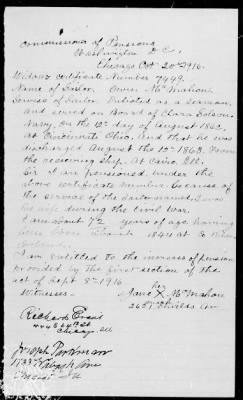 Commissioner of Pensions
Washington D.C.
Chicago Oct 20th 1916.
Widows Certificate Number 7499.
Name of Sailor. Owen McMahon.
Service of Sailor. Enlisted as a Seaman,
and served on Board of Clara Dolsen
Navy, on the 12th day of August 1862,
at Cincinnati Ohio, and that he was
discharged August the 12th 1863. From
the receiving ship. At Cairo, Ill.
Sir I am pensioned under the
above certificate number because of
the service of the sailor named. I was
his wife during the civil war.
I am about 72 years of age having
been born about 1844 at Co
Ireland.
I am entitled to the increase of pension
provided by the first section of the
act of Sept 8th 1916
Witnesses- her
X McMahon
Shields Av
Richard Evans
Chicago Ill
Joseph
Wabash Ave